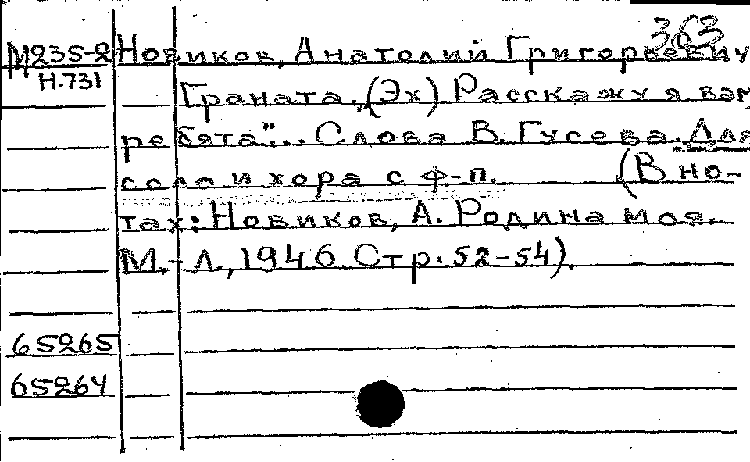 363
М235-2 Новиков, Анатолий Григорьевич
Н.731
Граната. „(Эх) Расскажу я вам
ребята"... Слова В. Гусева. Для
соло и хора с ф-п. (В но-
тах: Новиков, А. Родина моя.
М.-Л., 1946 Стр. 52-54).
65265
65264